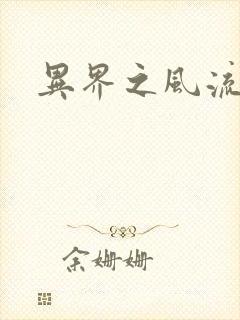 異界之風流
余姗姗